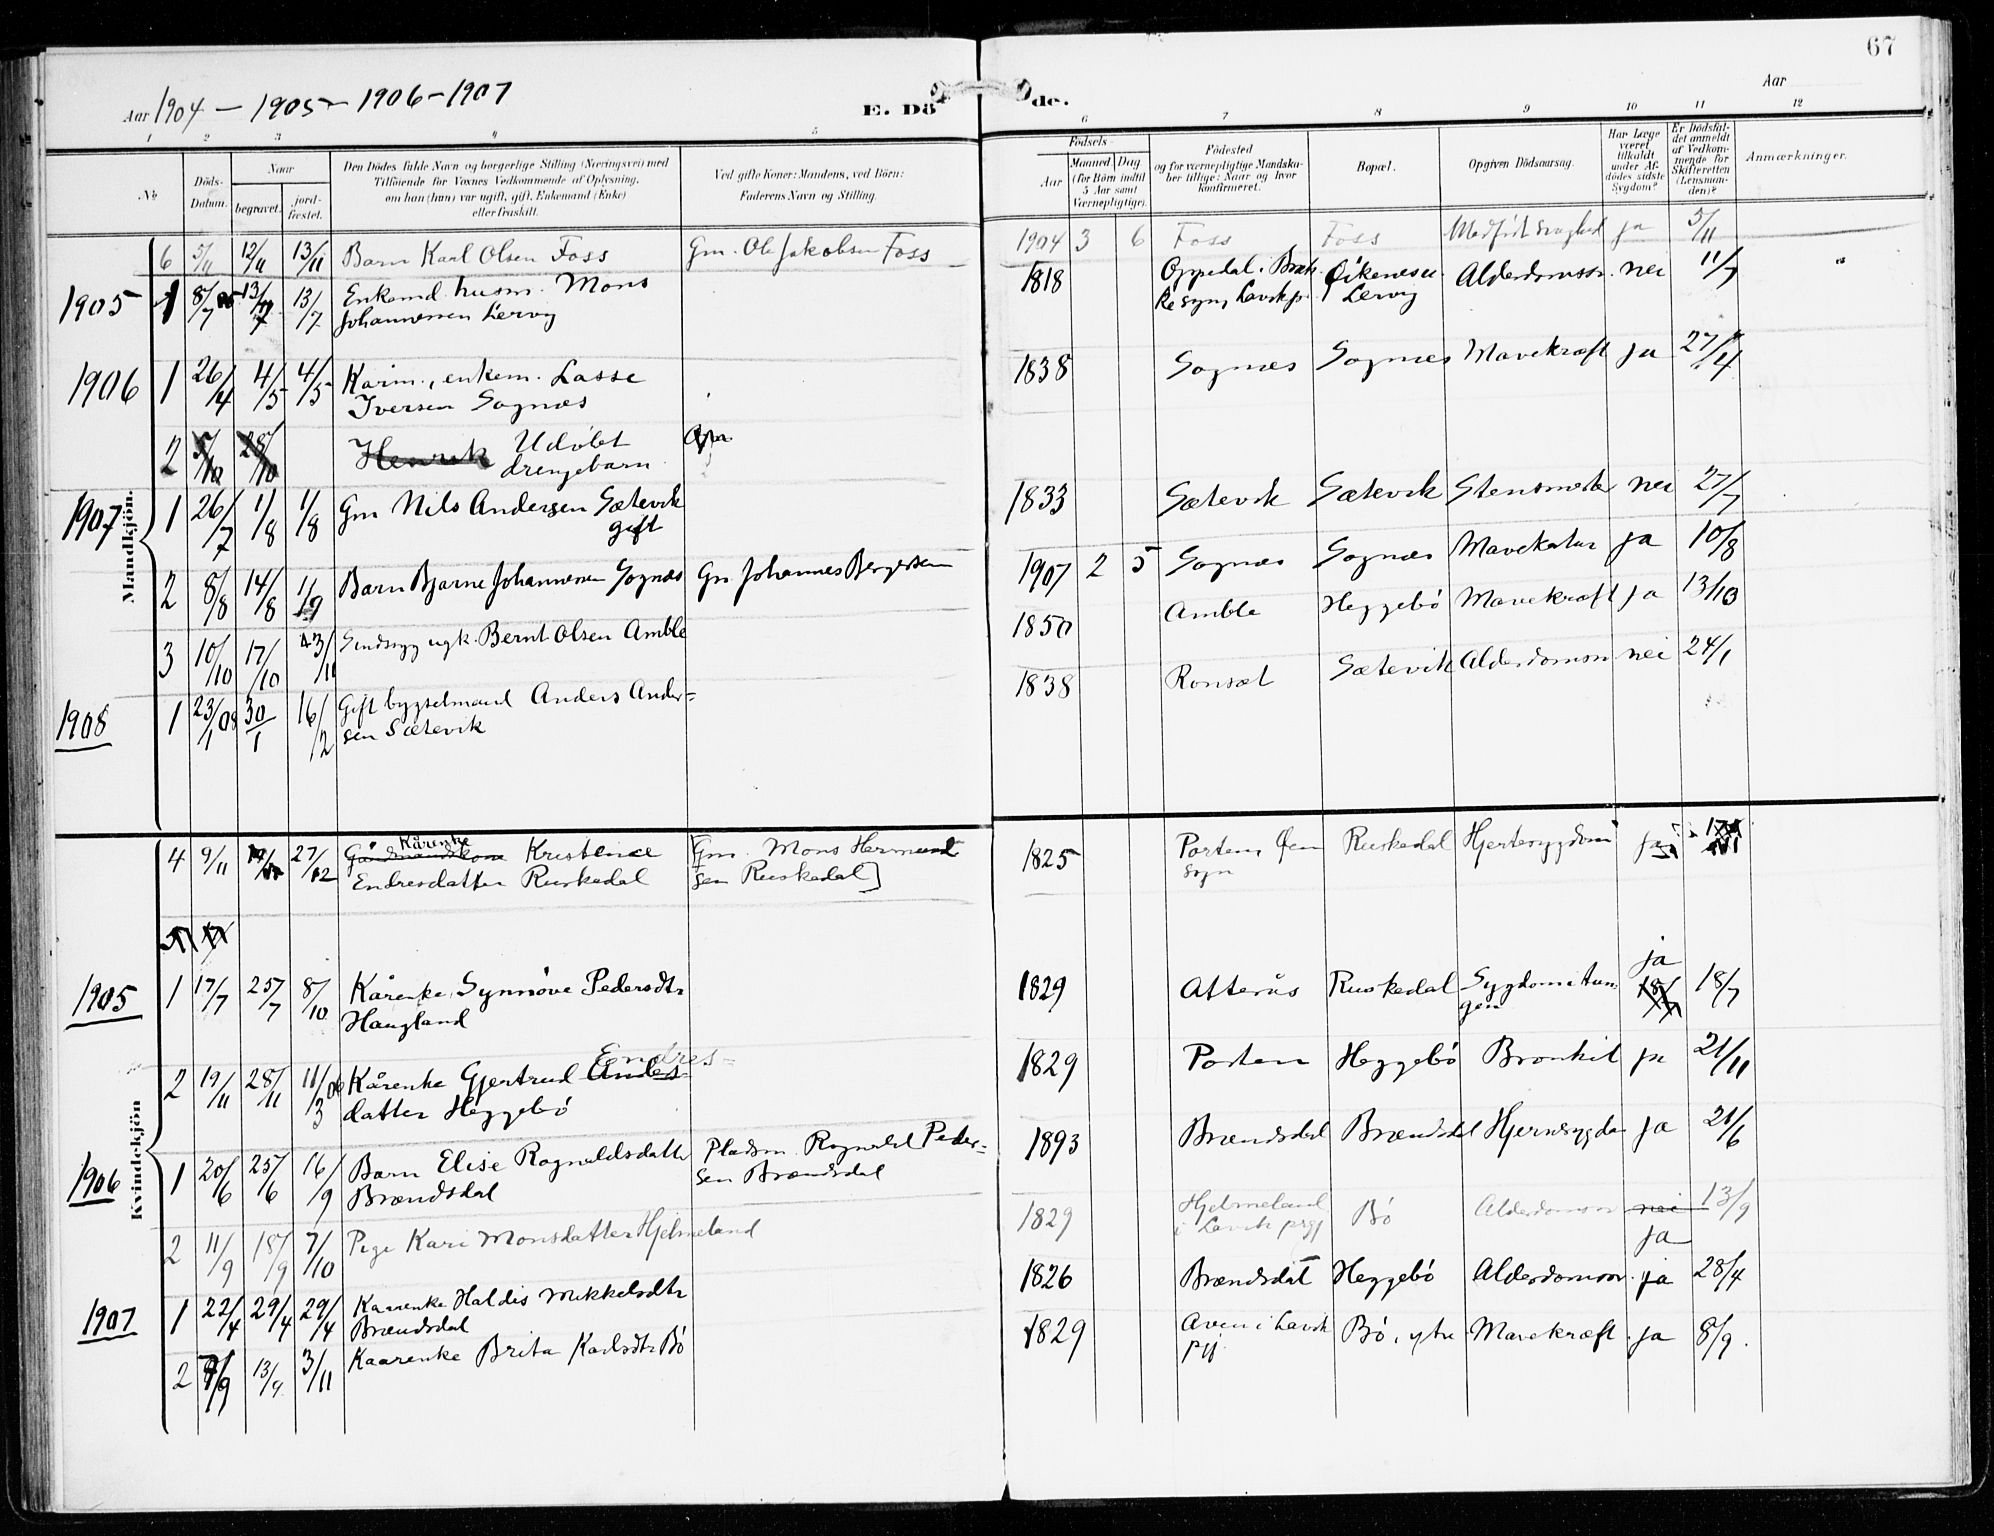 67
Aar 1904 – 1905 – 1906 – 1907
E. Dö de.
Aar
1 2 3 4 5 6 7 8 9 10 11 12
No
Döds-
Datum.
Naar
begravet.
jord-
fæstet.
Den Dödes fulde Navn og borgerlige Stilling (Næringsvei) med
Tilföiende for Voxnes Vedkommende af Oplysning,
om han (hun) var ugift, gift, Enkemand (Enke)
eller fraskilt.
Ved gifte Koner: Mandens, ved Börn:
Faderens Navn og Stilling.
Födsels-
Aar
Maaned Dag
(for Börn indtil
5 Aar samt
Værnepligtige).
Födested
og for værnepligtige Mandska-
ber tillige: Naar og hvor
konfirmeret.
Bopæl.
Opgiven Dödsaarsag.
Har Læge
været
tilkaldt
under Af-
dödes sidste
Sygdom?
Er Dödsfal-
det anmeldt
af Vedkom-
mende for
Skifteretten
(Lensman-
den)?
Anmærkninger.
Mandkjön.
6 5/11 12/11 13/11 Barn Karl Olsen Foss Gm. Ole Jakobsen Foss 1904 3 6 Foss Foss Medfødt svaghed ja 5/11
1905 1 8/7 05 13/7 13/7 Enkemd. husm. Mons
Johannessen Lervig
1818 Oppedal i Bræk-
ke sogn, Lavik p. Øikenes u.
Lervig Alderdomssv. nei 11/7 "
1906 1 26/4 4/5 4/5 Kårm., enkem. Lasse
Iversen Sognes
1838 Sognes Sognes Mavekræft ja 27/4
2 5/10 28/10 Henrik Udøbt
drengebarn
1907 1 26/7 1/8 1/8 Gm Nils Andersen Sætevik
gift
1833 Sætevik Sætevik nei 27/7
2 8/8 14/8 1/9 Barn Bjarne Johannesen Sognes Gm Johannes Bergersen 1907 2 5 Sognes Sognes Mavekatar ja 10/8
3 10/10 17/10 3/11 Sindssyg ugk. Bernt Olsen Amble 1850 Amble Heggebö Mavekræft ja 13/10
1908 1 23/1 08 30/1 16/2 Gift bygselmand Anders Ander-
sen Sætevik
1838 Ronset Sætevik Alderdomssv nei 24/1
Kvindekjön
4 9/11 27/12 Gårdmandskone Kårenke Kristence
Endresdatter Ruskedal
Gm. Mons Hermund
sen Ruskedal]
1825 Porten, Øen
sogn Ruskedal Hjertesygdom ja
1905 1 17/7 25/7 8/10 Kårenke, Synnöve Pedersdtr
Haugland
1829 Atterås Ruskedal Sygdom i tun-
gen ja
18/7 18/7
2 19/11 28/11 11/3 06 Kårenke Gjertrud Andes- Endres-
datter Heggebö
1829 Porten Heggebö Bronkit ja 21/11
1906 1 20/6 25/6 16/9 Barn Elise Ragnvaldsdatter
Brændsdal
Pladsm. Ragnvald Peder-
sen Brændsdal
1893 Brændsdal Brændsdal Hjernesygdo ja 21/6
2 11/9 18/9 7/10 Pige Kari Monsdatter Hjelmeland 1829 Hjelmeland
i Lavik prgj Bö Alderdomssv nei
ja 13/9
1907 1 22/4 29/4 29/4 Kaarenke Haldis Mikkelsdtr
Brændsdal
1826 Brændsdal Heggebö Alderdomssv. ja 28/4
2 9/9 13/9. 3/11 Kaarenke Brita Karlsdtr Bö 1829 Aven i Lavik
pgj. Bö, ytre Mavekræft. ja 8/9.